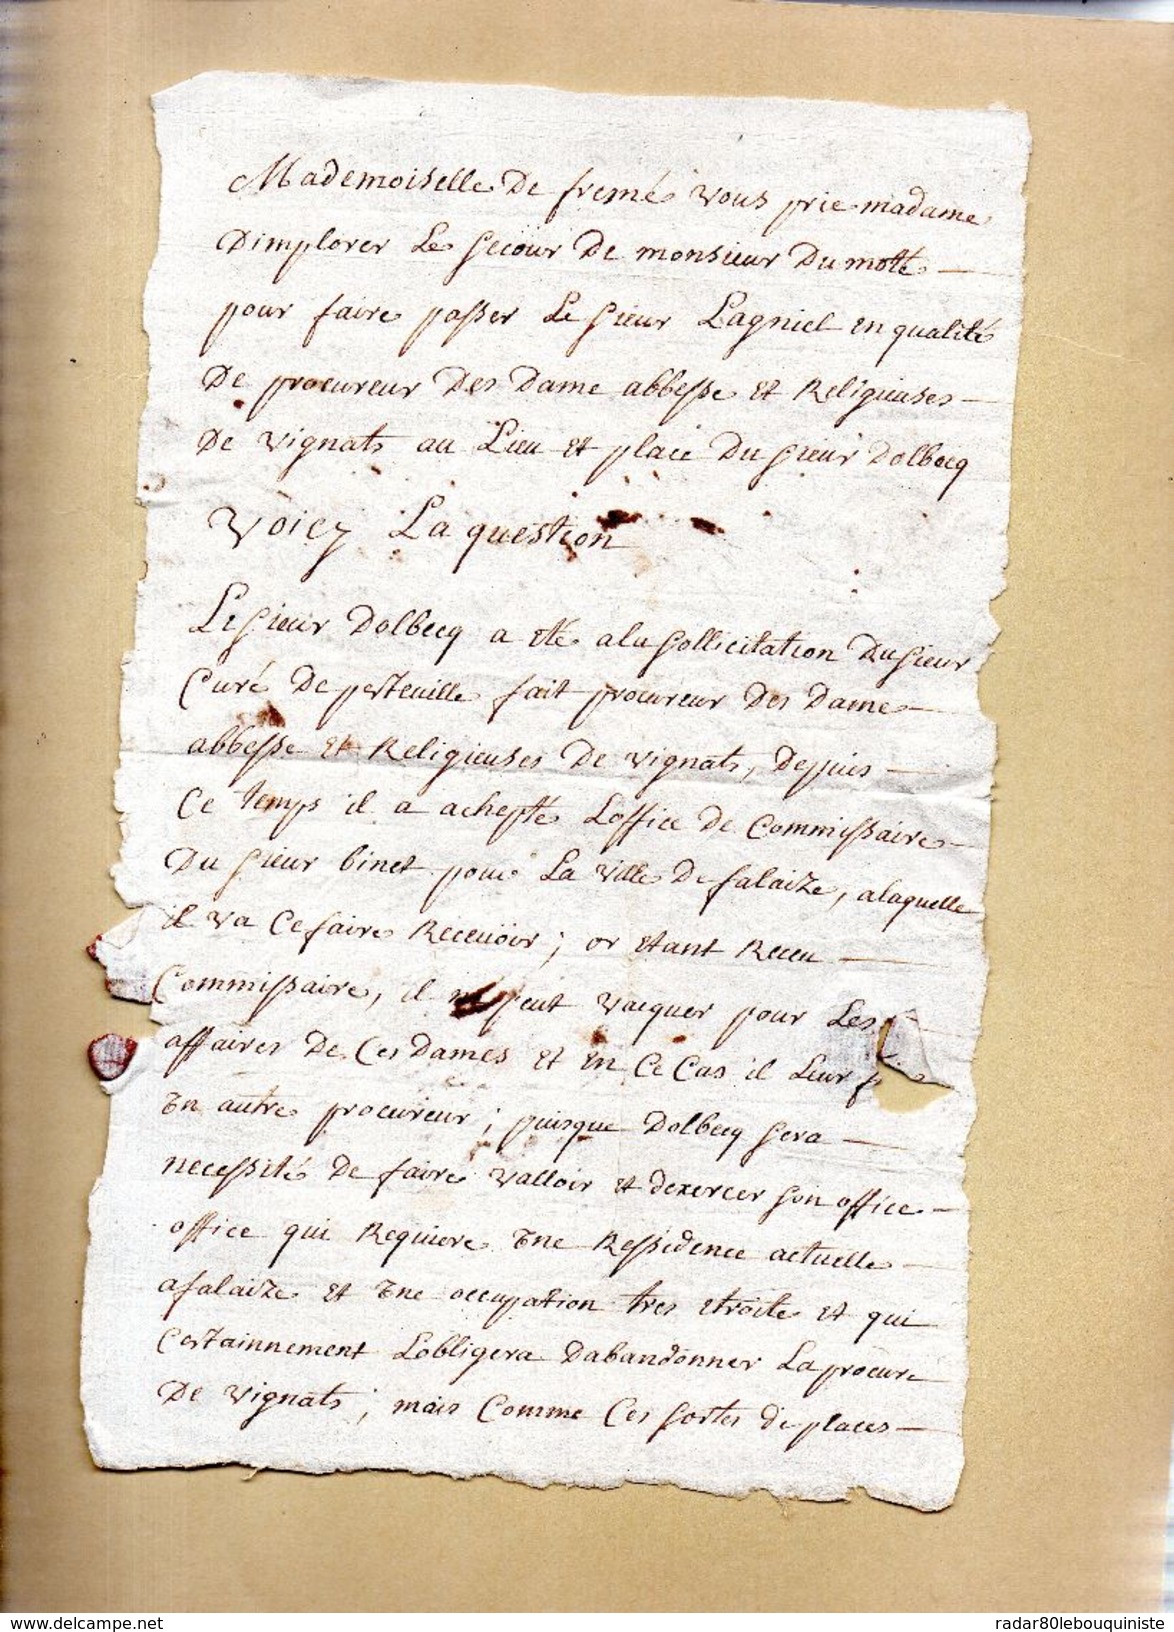 Mademoiselle De fremé vous prie madame
Dimplorer Le secour De monsieur Dumotté
pour faire passer Le sieur Lagniel en qualité
De procureur Des Dame abbesse et Religieuses
De vignats au Lieu et place Du sieur Dolbecq
Voicy La question
Le sieur Dolbecq a eté ala sollicitation Du sieur
Curé De perteuille fait procureur Des Dame
abbesse et Religieuses De vignats, Depuis
Ce temps il a achepté Loffice De Commissaire
Du sieur binet pour La ville De falaize, alaquelle
il va Ce faire Recevoir ; or etant Receu
Commissaire, il ne peut vacquer pour Les
affaires De Ces Dames et en Ce Cas il Leur
un autre procureur ; puisque Dolbecq sera
necessité De faire valloir et dexercer son office
office qui Requiere une Ressidence actuelle
afalaize et une occupation tres etroite et qui
Certainnement Lobligera Dabandonner La procure
De vignats ; mais Comme Ces sortes de places
www.delcampe.net
radar80lebouquiniste